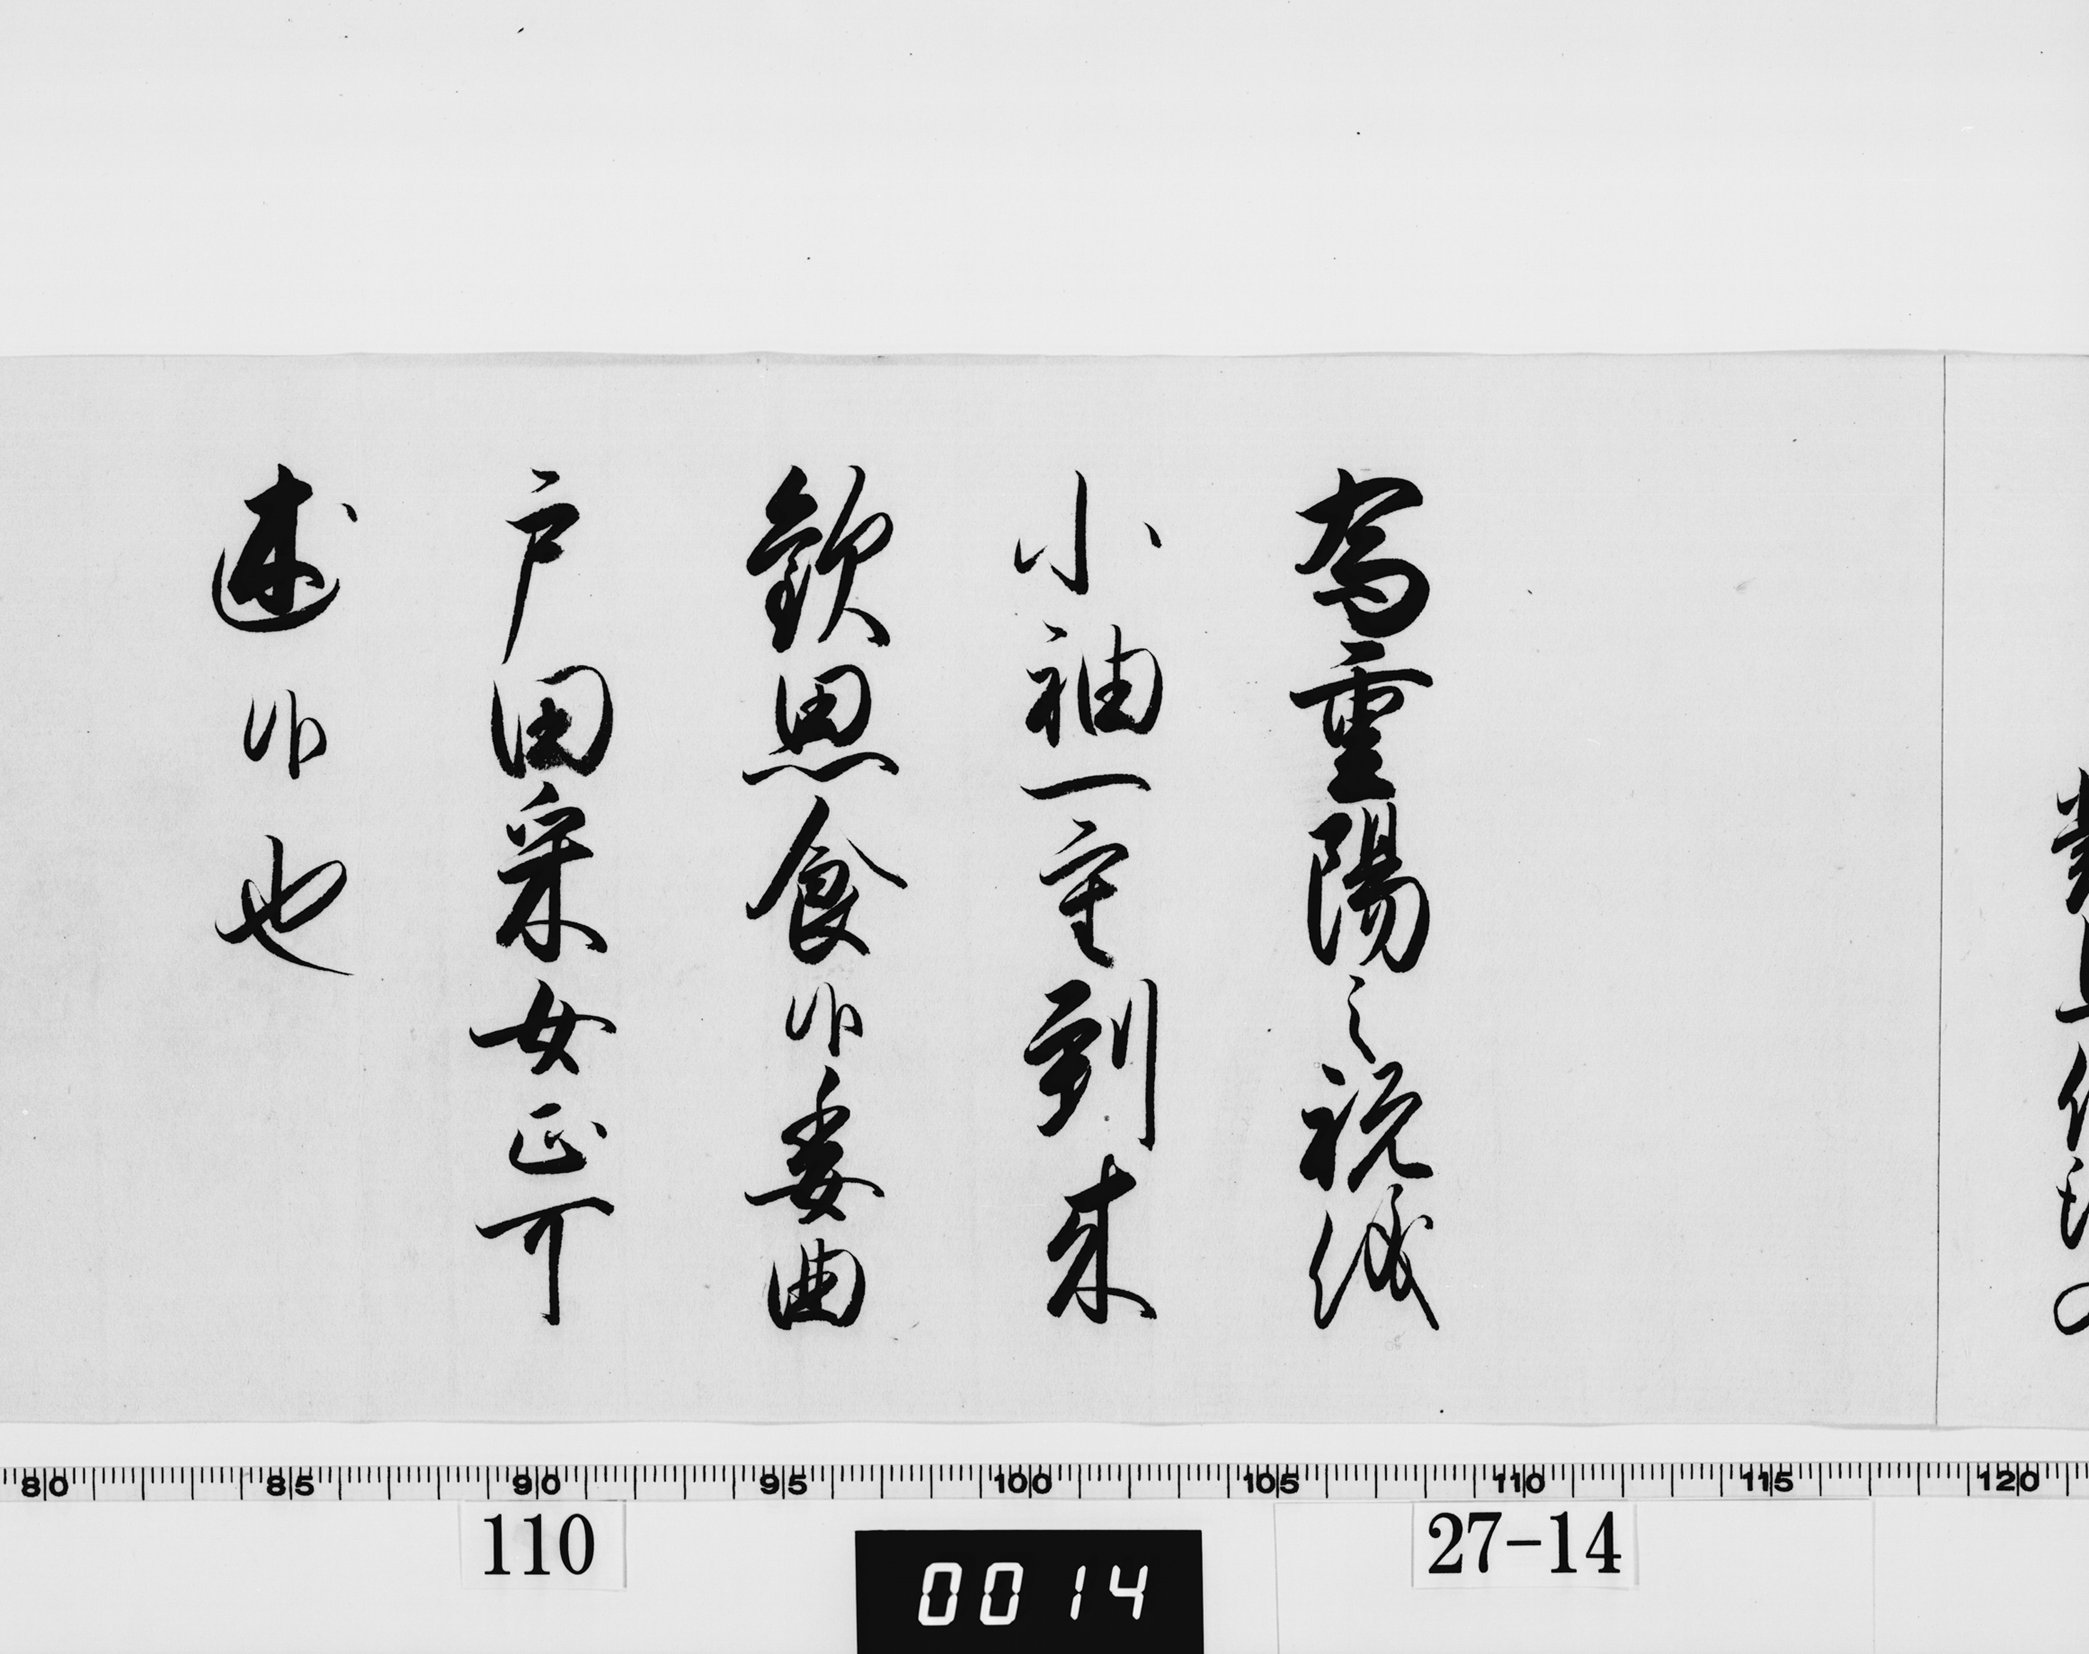 為重陽之祝儀
小袖一重到来
歓思食候委曲
戸田采女正可
述候也
80 85 90 95 100 105 110 115 120
110
0014
27-14